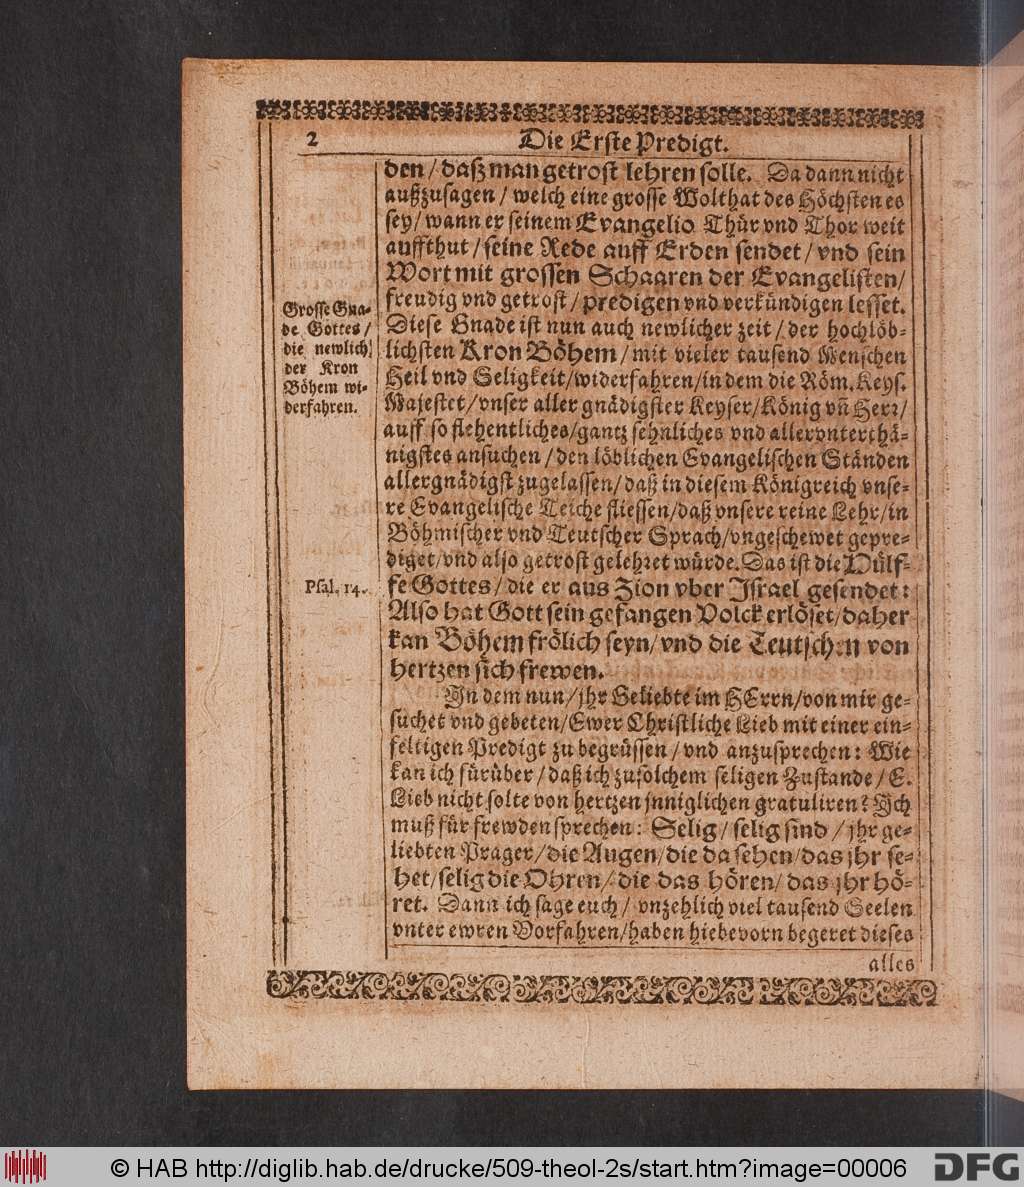 2
Die Erste Predigt.
den / daß man getrost lehren solle. Da dann nicht
außzusagen / welch eine grosse Wolthat des Höchsten es
sey / wann er seinem Evangelio Thür vnd Thor weit
auffthut / seine Rede auff Erden sendet / vnd sein
Wort mit grossen Schaaren der Evangelisten /
freudig vnd getrost / predigen vnd verkündigen lesset.
Grosse Gna-
de Gottes /
die newlich
der Kron
Böhem wi-
derfahren.
Diese Gnade ist nun auch newlicher zeit / der hochlöb-
lichsten Kron Böhem / mit vieler tausend Menschen
Heil vnd Seligkeit / widerfahren / in dem die Röm. Keys.
Majestet / vnser aller gnädigster Keyser / König vñ Herr /
auff so flehentliches / gantz sehnliches vnd allervnterthä-
nigstes ansuchen / den löblichen Evangelischen Ständen
allergnädigst zugelassen / daß in diesem Königreich vnse-
re Evangelische Teiche fliessen / daß vnsere reine Lehr / in
Böhmischer vnd Teutscher Sprach / vngeschewet gepre-
diget / vnd also getrost gelehret würde. Das ist die Hülf-
Psal. 14.
fe Gottes / die er aus Zion vber Israel gesendet:
Also hat Gott sein gefangen Volck erlöset / daher
kan Böhem frölich seyn / vnd die Teutschen von
hertzen sich frewen.
In dem nun / jhr Geliebte im HErrn / von mir ge-
suchet vnd gebeten / Ewer Christliche Lieb mit einer ein-
feltigen Predigt zu begrüssen / vnd anzusprechen: Wie
kan ich fürüber / daß ich zu solchem seligen Zustande / E.
Lieb nicht solte von hertzen jnniglichen gratuliren? Ich
muß für frewden sprechen: Selig / selig sind / jhr ge-
liebten Prager / die Augen / die da sehen / das jhr se-
het / selig die Ohren / die das hören / das jhr hö-
ret. Dann ich sage euch / vnzehlich viel tausend Seelen
vnter ewren Vorfahren / haben hiebevorn begeret dieses
alles
© HAB http://diglib.hab.de/drucke/509-theol-2s/start.htm?image=00006
DFG